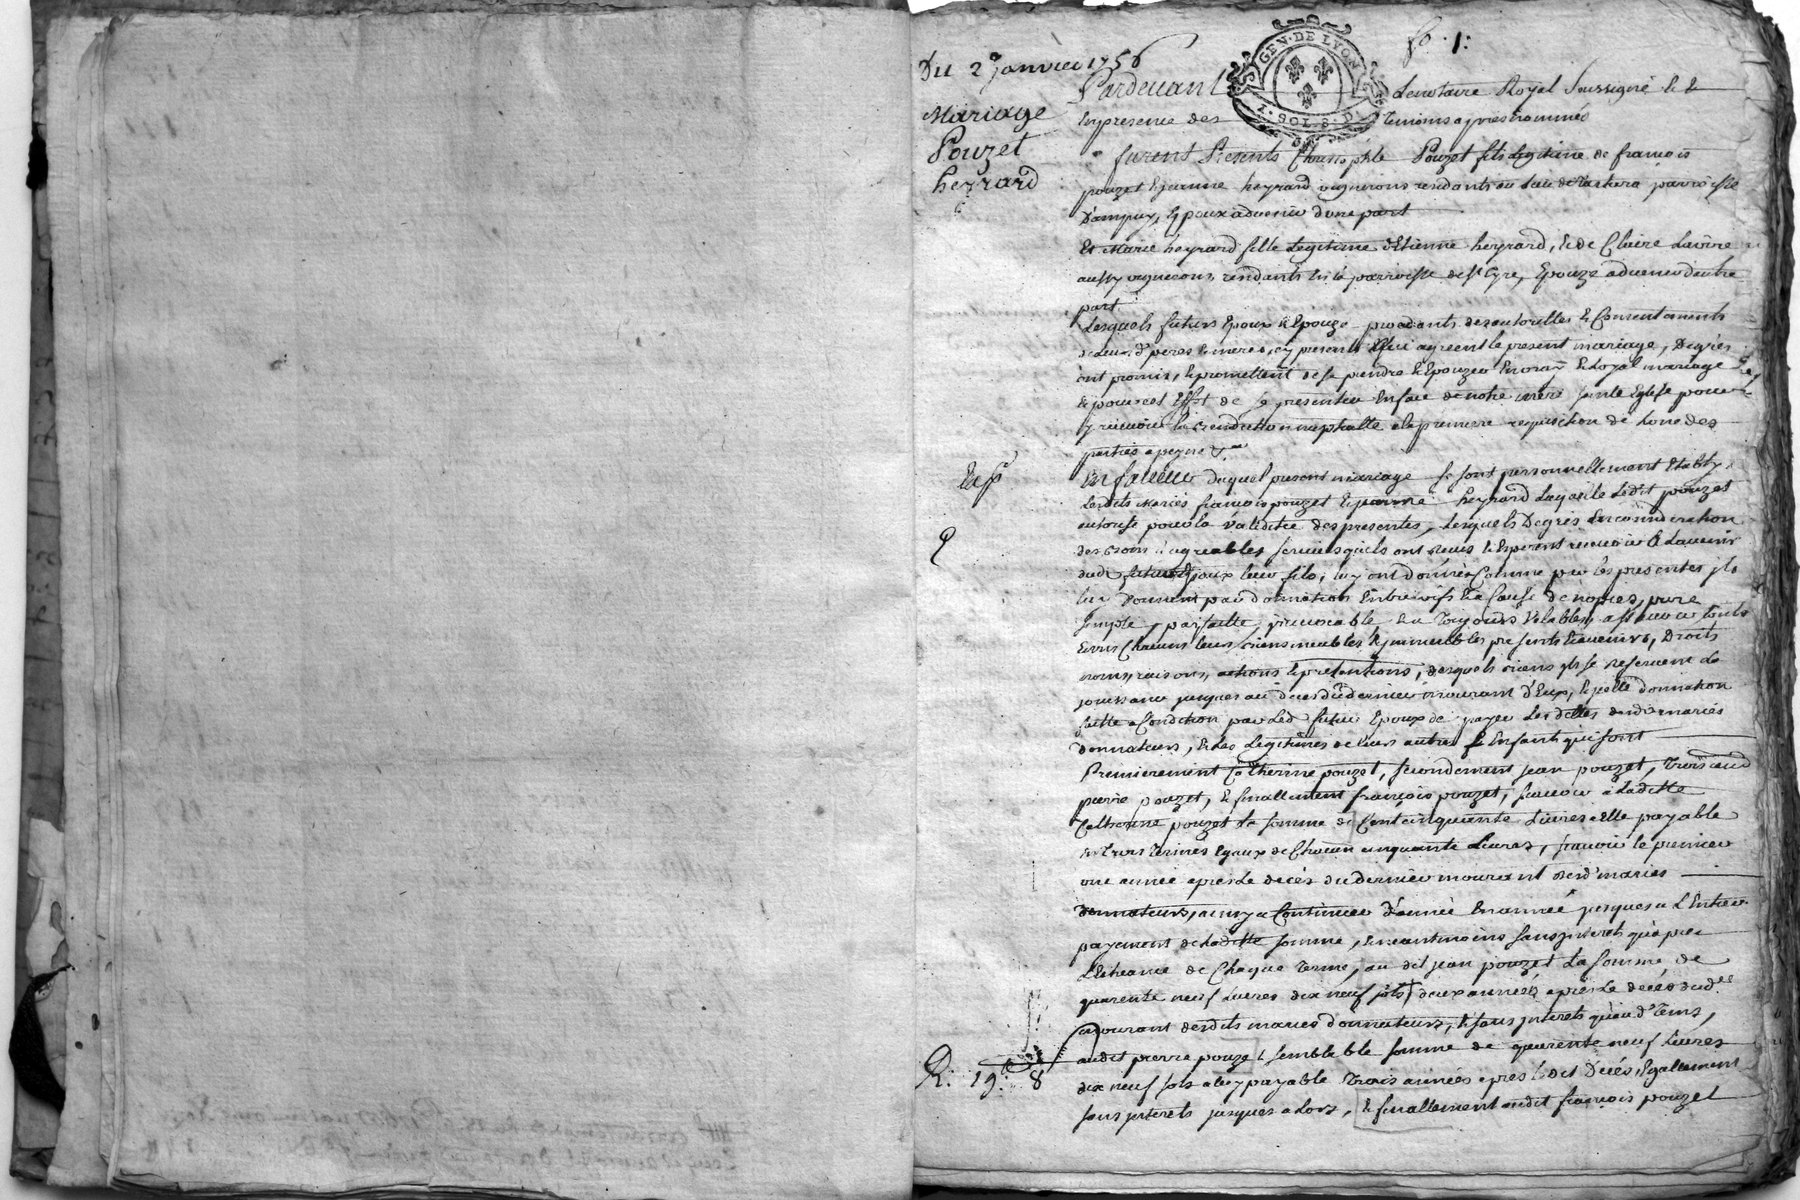 fo. 1.
GEN. DE LYON
1. SOL. 8. D.
Du 2 Janvier 1756
Mariage
Pouzet
heyrard
Pardevant Le notaire Royal Soussigné & E
En presence des Temoins apres nommés
furent Presents Pouzet fils Legitime de francois
pouzet & jeanne heyrard vignerons residants au lieu de parroisse
D'ampuy, Epoux advenir d'une part
Et Marie heyrard fille Legitime d'Etienne heyrard, & de Claire Lavire
aussy vignerons residants en la parroisse de St Cyre, Epouze advenir d'autre
part
Lesquels futurs Epoux & Epouze procedants des authorités & Consentements
de leurs d. peres & meres, cy presents & qui agréent le present mariage, De gré
ont promis, & promettent de se prendre & Epouzer en vray & Loyal mariage
& pour cet Effet de se presenter En face de notre mere sainte Eglise pour
y recevoir la Benediction nuptialle a la premiere requisition de Lune des
parties a peyne &a
En faveur duquel present mariage se sont personnellement Etablys
Lesdits Mariés francois pouzet & jeanne heyrard Laquelle Ledit pouzet
autorise pour la validitée des presentes, Lesquels De gré En consideration
des bons & agreables services quils ont reçus & Esperent recevoir a Lavenir
dud. futur Epoux leur fils, luy ont donné & Comme par les presentes ils
luy Donnent par donnation Entre vifs & a Cause de nopces, pure
simple, parfaitte, irrevocable & a Toujours Valable, a sçavoir Touts
& uns Chacuns leurs biens meubles & immeubles presents & avenirs, Droits
noms, raisons, actions & pretentions, desquels biens ils se reservent La
jouissance jusques au deces du dernier mourant d'Eux, & telle donnation
faitte a Condition par Led. futur Epoux de payer Les dettes desd. mariés
donnateurs, & Les Legitimes de leurs autres Enfants qui sont
Premierement Catherine pouzet, secondement jean pouzet, Trois
pierre pouzet, & finallement francois pouzet, sçavoir a Laditte
Catherine pouzet La somme de Cent cinquante Livres a Elle payable
En trois Termes Egaux de Chacun cinquante Livres, sçavoir le premier
une année apres Le decès du dernier mourant desd. mariés
donnateurs, ainsy a Continuer d'année En année jusques a L'Entier
payement de Laditte somme, & neantmoins sans interets qu'apres
L'Echeance de Chaque Terme, au dit jean pouzet La somme de
quarente neuf Livres dix neuf sols deux années apres Le decés dud. der
mourant desdits mariés donnateurs, & sans interets qu'aud. Tems,
audit pierre pouzet semblable somme de quarente neuf Livres
R. 19. 8
dix neuf sols a luy payable Trois années apres Ledit Decès Egallement
sans interets jusques alors, & finallement audit francois pouzet